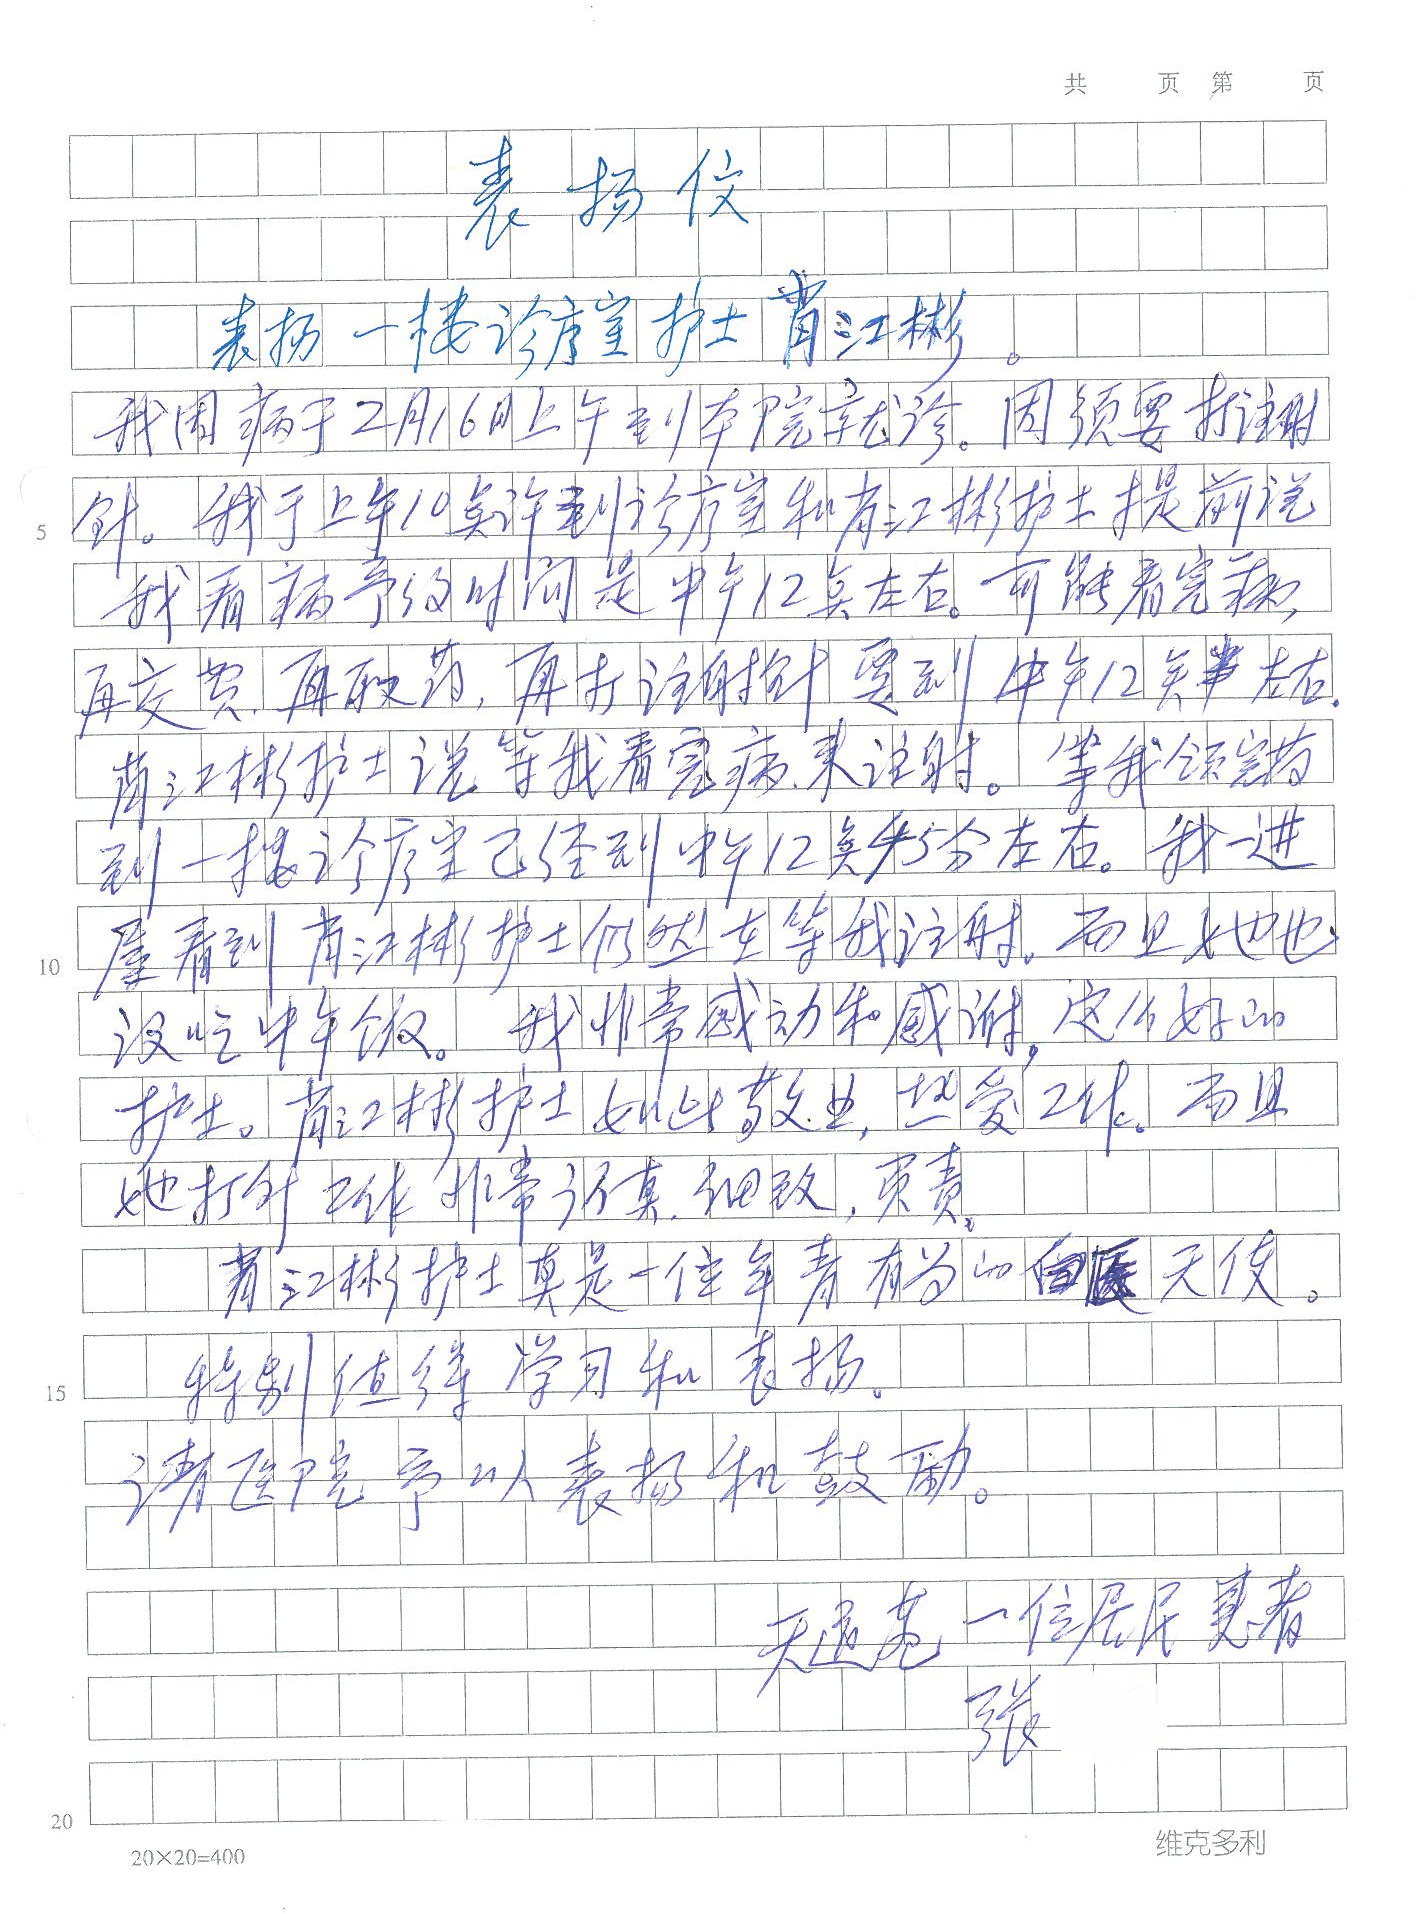 共 页 第 页
表扬信
表扬一楼诊疗室护士肖江彬。
我因病于2月16日上午到本院就诊。因须要打注射
5 针。我于上午10点许到诊疗室和肖江彬护士提前说
我看病予约时间是中午12点左右。可能看完病,
再交费,再取药,再打注射针要到中午12点半左右.
肖江彬护士说等我看完病来注射。等我领完药
到一楼诊疗室已经到中午12点45分左右。我一进
屋看到肖江彬护士仍然在等我注射。而且她也
10
没吃中午饭。我非常感动和感谢,这么好的
护士。肖江彬护士如此敬业,热爱工作。而且
她打针工作非常认真.细致,负责。
肖江彬护士真是一位年青有为的白医天使。
15 特别值得学习和表扬。
请医院予以表扬和鼓励。
天通苑一位居民患者
张
20
20×20=400
维克多利